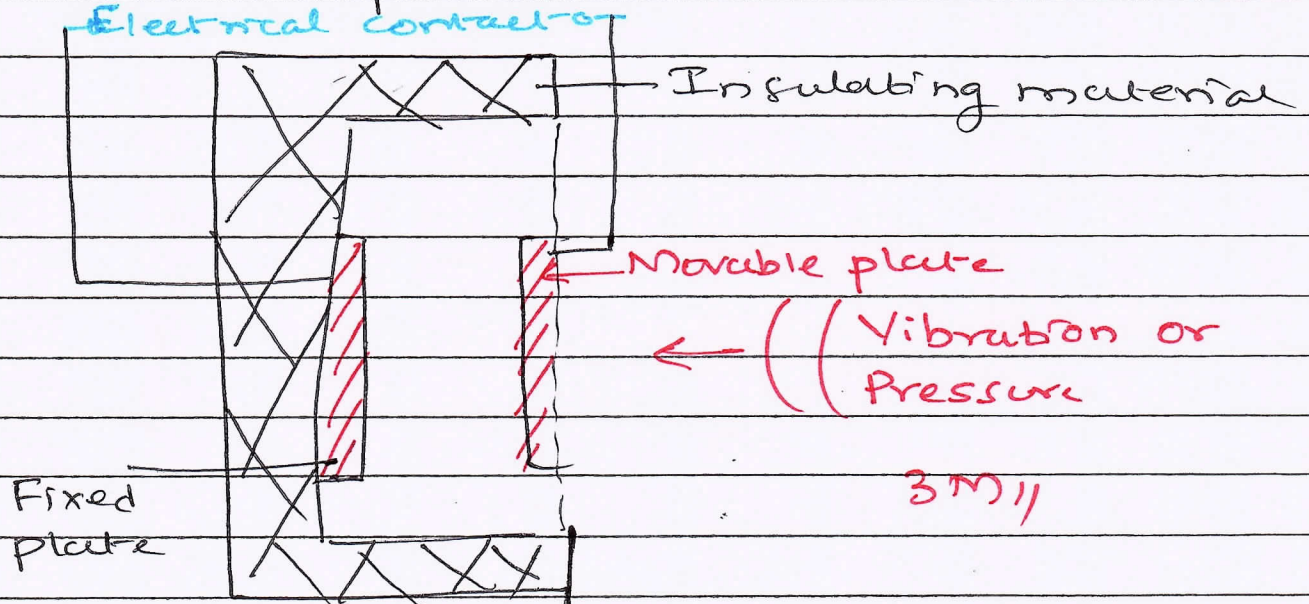 Electrical contacto
Insulating material
Movable plate
Vibration or
Pressure
3M
Fixed
plate